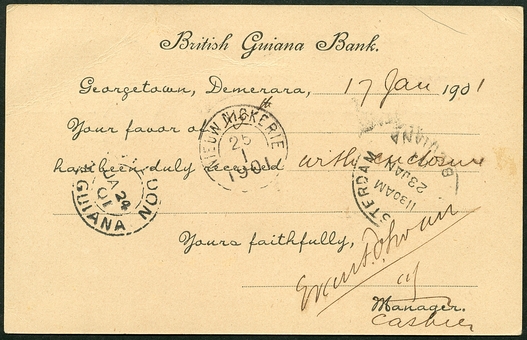 British Guiana Bank.
Georgetown, Demerara, 17 Jan 1901
Your favor of
has been duly received with enclosure
Yours faithfully,
Manager.
Cashier
NIEUW NICKERIE
25
1
1901
JA 24
01
GUIANA
STERDAM
1130AM
23JAN